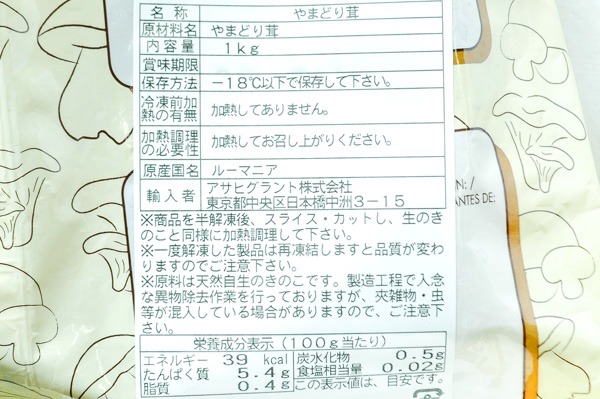 名称 やまどり茸
原材料名 やまどり茸
内容量 1kg
賞味期限
保存方法 －18℃以下で保存して下さい。
冷凍前加熱の有無 加熱してありません。
加熱調理の必要性 加熱してお召し上がりください。
原産国名 ルーマニア
輸入者 アサヒグラント株式会社
東京都中央区日本橋中洲3－15
※商品を半解凍後、スライス・カットし、生のき
のこと同様に加熱調理して下さい。
※一度解凍した製品は再凍結しますと品質が変わ
りますのでご注意下さい。
※原料は天然自生のきのこです。製造工程で入念
な異物除去作業を行っておりますが、夾雑物・虫
等が混入している場合がありますので、ご注意下
さい。
栄養成分表示（100g当たり）
エネルギー 39 kcal 炭水化物 0.5g
たんぱく質 5.4g 食塩相当量 0.02g
脂質 0.4g この表示値は、目安です。
N: /
ANTES DE: